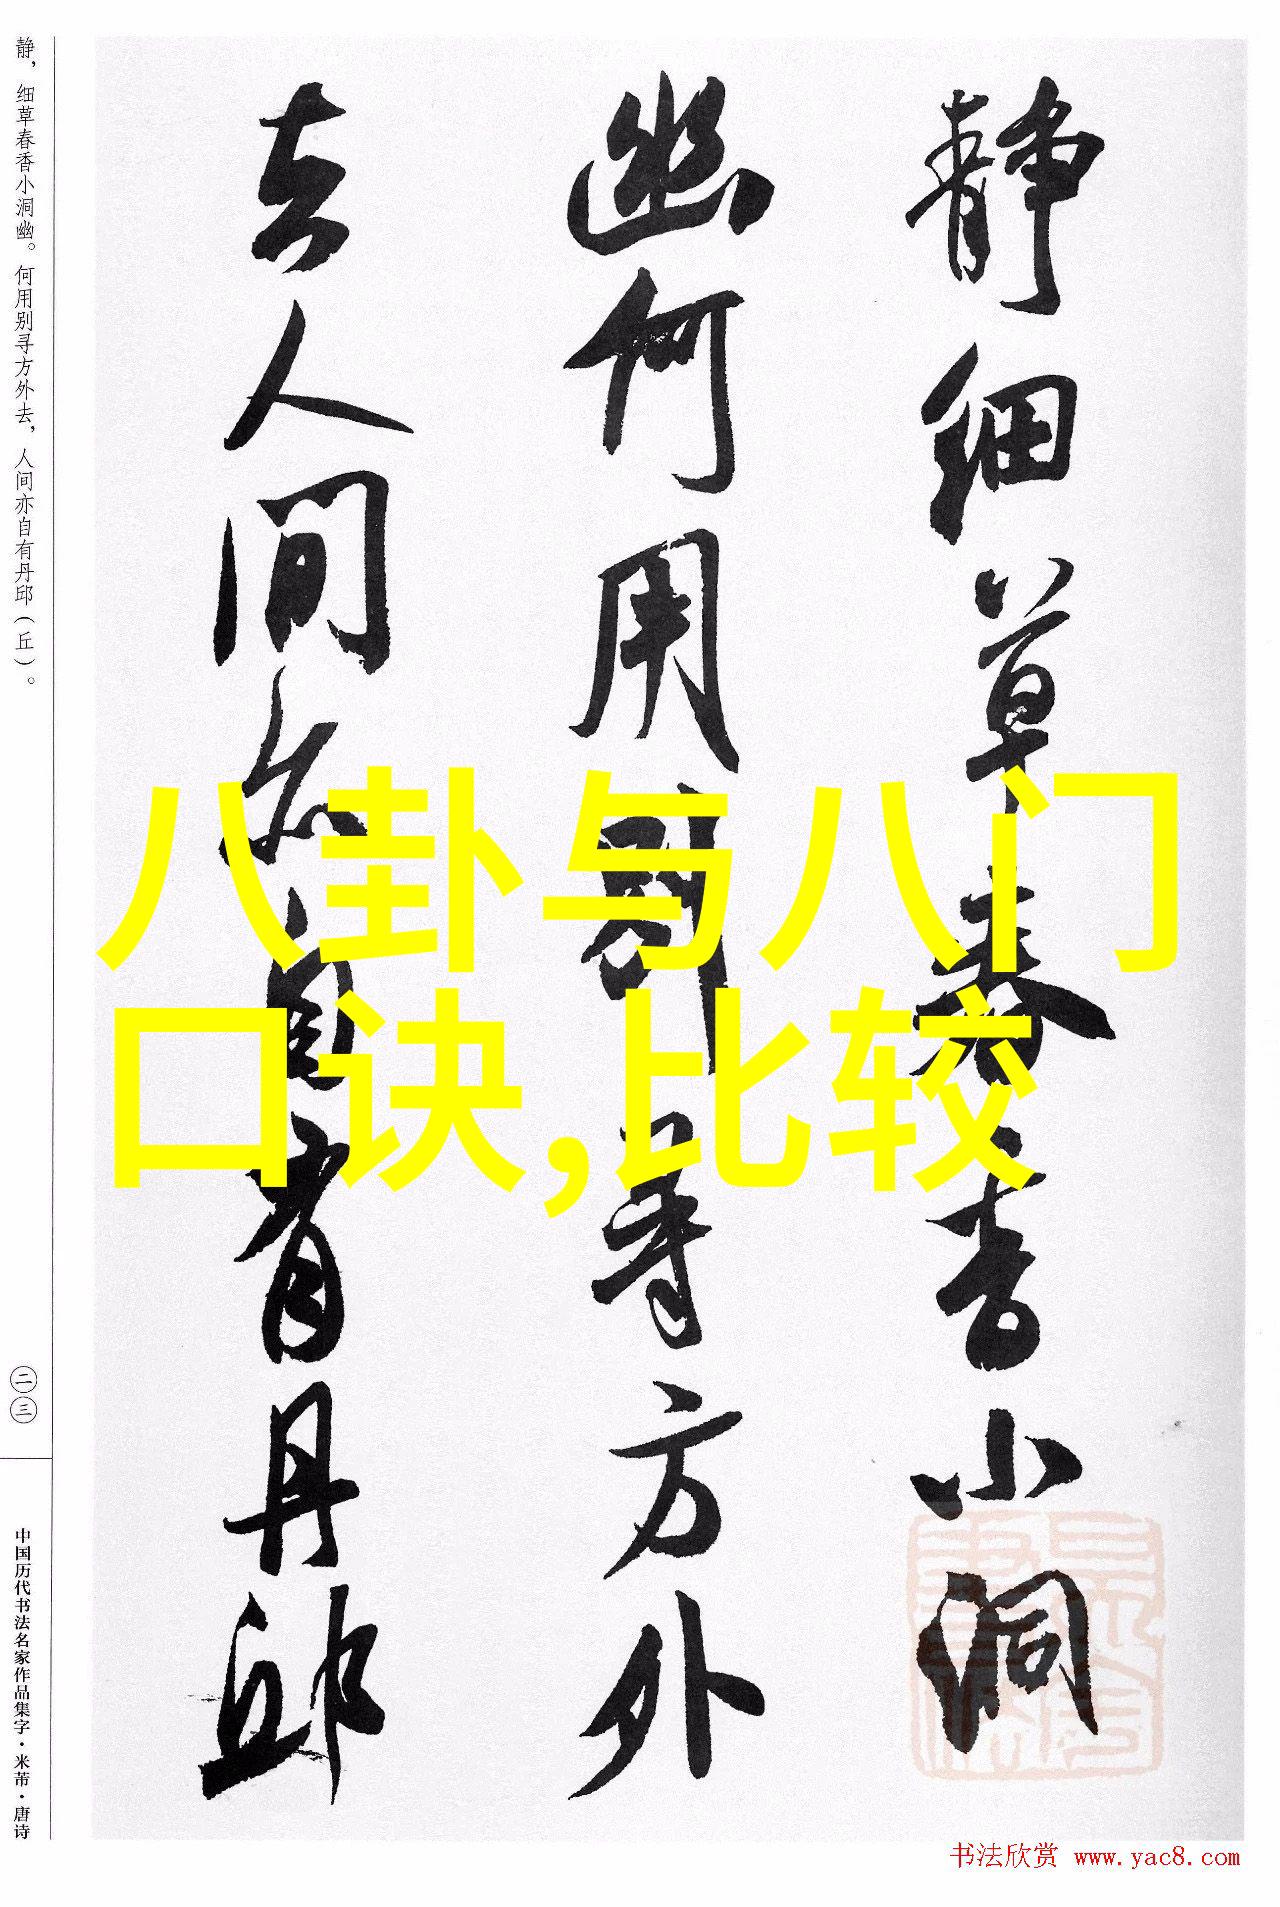 静细草春香小洞
幽何用别寻方外
去人间亦自有丹邱
八卦与八门
口诀,比较
静，细草春香小洞幽。何用别寻方外去，人间亦自有丹邱（丘）。
二三
中国历代书法名家作品集字·米芾·唐诗
书法欣赏 www.yac8.com